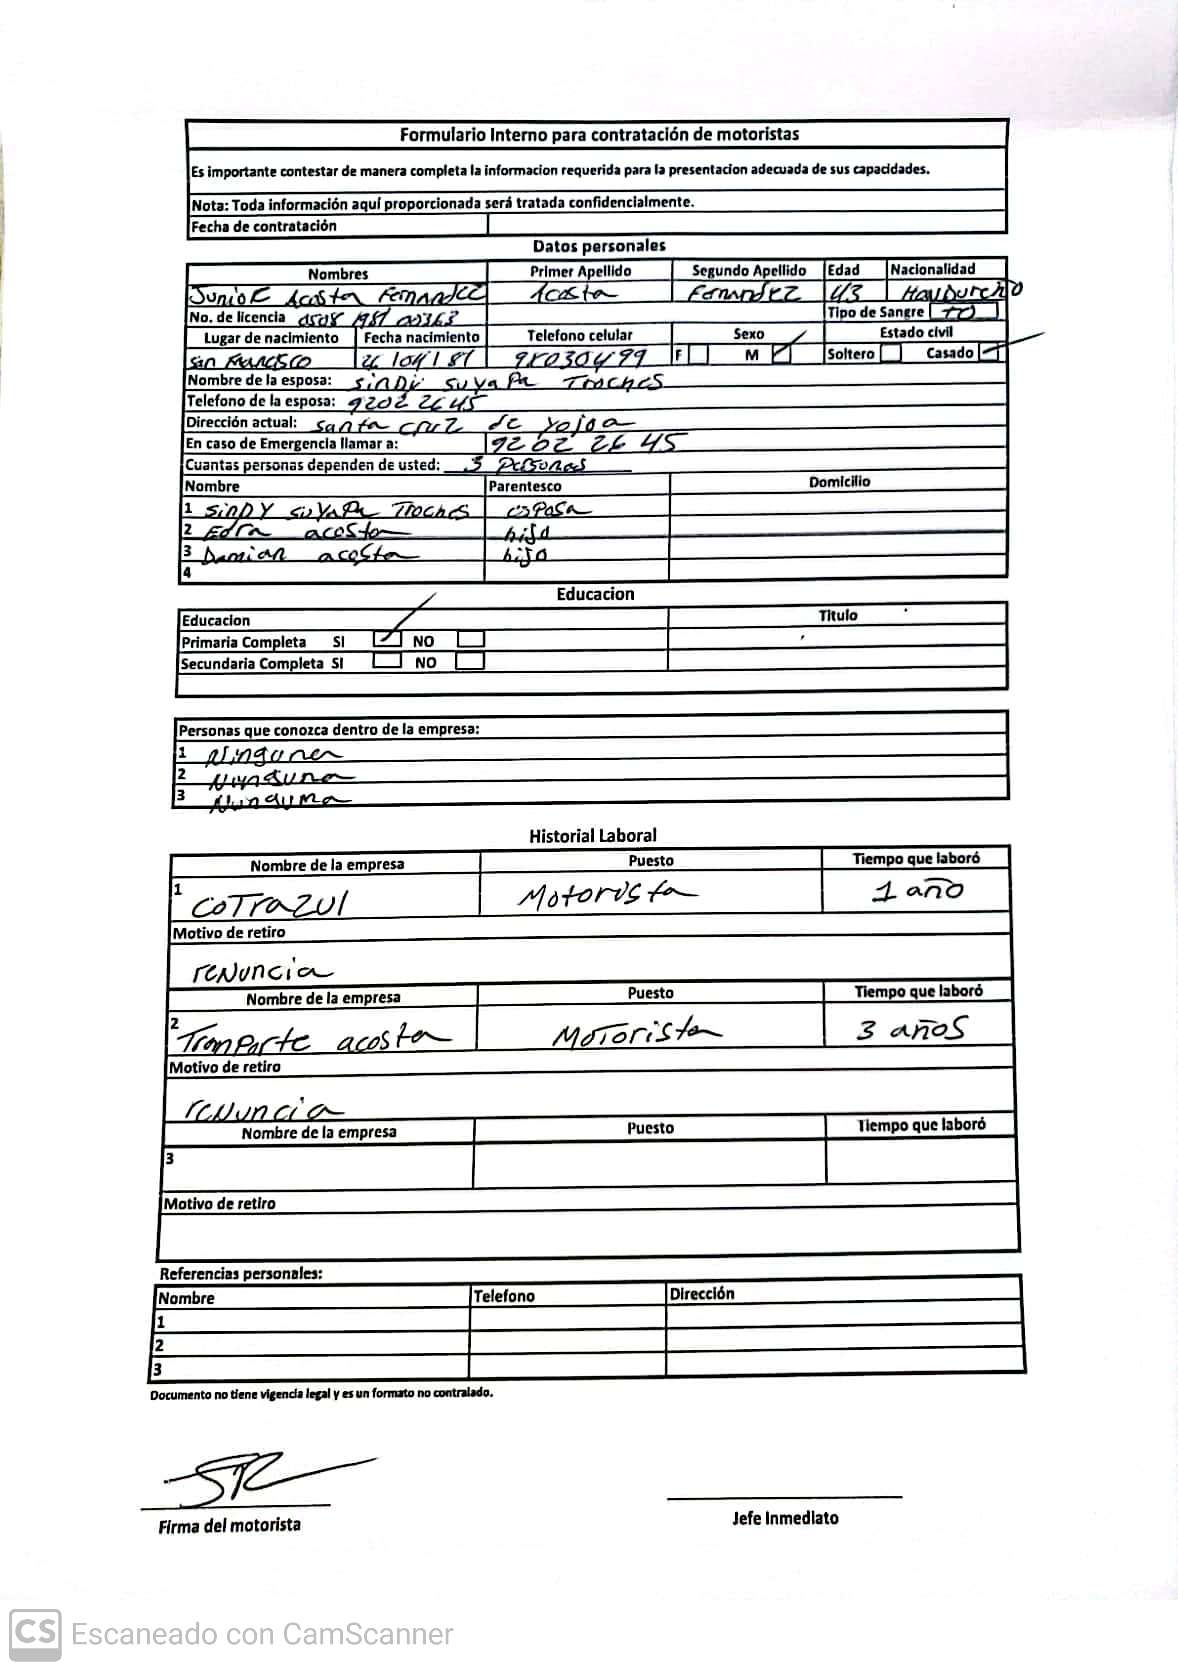 Formulario Interno para contratación de motoristas
Es importante contestar de manera completa la informacion requerida para la presentacion adecuada de sus capacidades.
Nota: Toda información aquí proporcionada será tratada confidencialmente.
Fecha de contratación
Datos personales
Nombres Primer Apellido Segundo Apellido Edad Nacionalidad
Junior Acosta Fernandez Acosta Fernandez 43 Hondureño
No. de licencia 0508 1981 00363 Tipo de Sangre TO
Lugar de nacimiento Fecha nacimiento Telefono celular Sexo Estado civil
San Francisco 26/04/81 98030499 F M Soltero Casado
Nombre de la esposa: Sindy suyapa Troches
Telefono de la esposa: 9202 2645
Dirección actual: santa cruz de yojoa
En caso de Emergencia llamar a: 9202 26 45
Cuantas personas dependen de usted: 3 Personas
Nombre Parentesco Domicilio
1 SinDY suyapa Troches esposa
2 acosta hija
3 Damian acosta hijo
4
Educacion
Educacion Titulo
Primaria Completa SI NO
Secundaria Completa SI NO
Personas que conozca dentro de la empresa:
1 Ninguna
2 Ninguna
3 Ninguna
Historial Laboral
Nombre de la empresa Puesto Tiempo que laboró
1 COTRAZUl Motorista 1 año
Motivo de retiro
renuncia
Nombre de la empresa Puesto Tiempo que laboró
2 Tranparte acosta Motorista 3 años
Motivo de retiro
renuncia
Nombre de la empresa Puesto Tiempo que laboró
3
Motivo de retiro
Referencias personales:
Nombre Telefono Dirección
1
2
3
Documento no tiene vigencia legal y es un formato no contralado.
Firma del motorista Jefe Inmediato
CS Escaneado con CamScanner